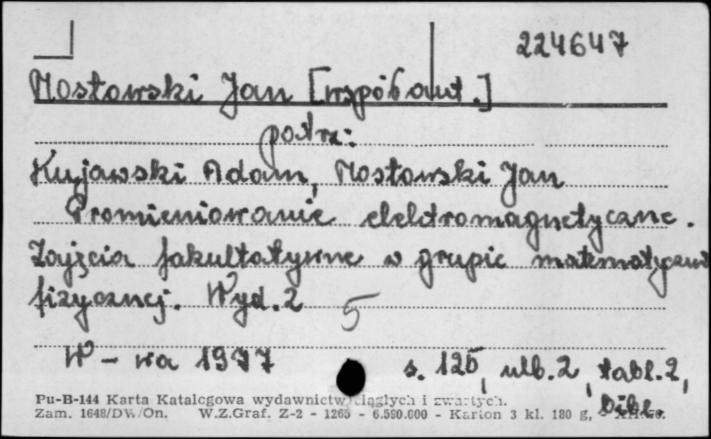 224647
Mostowski Jan [współaut.]
patrz:
Kujawski Adam, Mostowski Jan
Promieniowanie elektromagnetyczne.
Zajęcia fakultatywne w grupie matematyczno
fizycznej. Wyd. 2
5
W-wa 1977 s. 125, nlb. 2, tabl. 2,
bibl.
Pu-B-144 Karta Katalogowa wydawnictw ciągłych i zwartych.
Zam. 1648/DW/On. W.Z.Graf. Z-2 - 1265 - 6.590.000 - Karton 3 kl. 180 g,